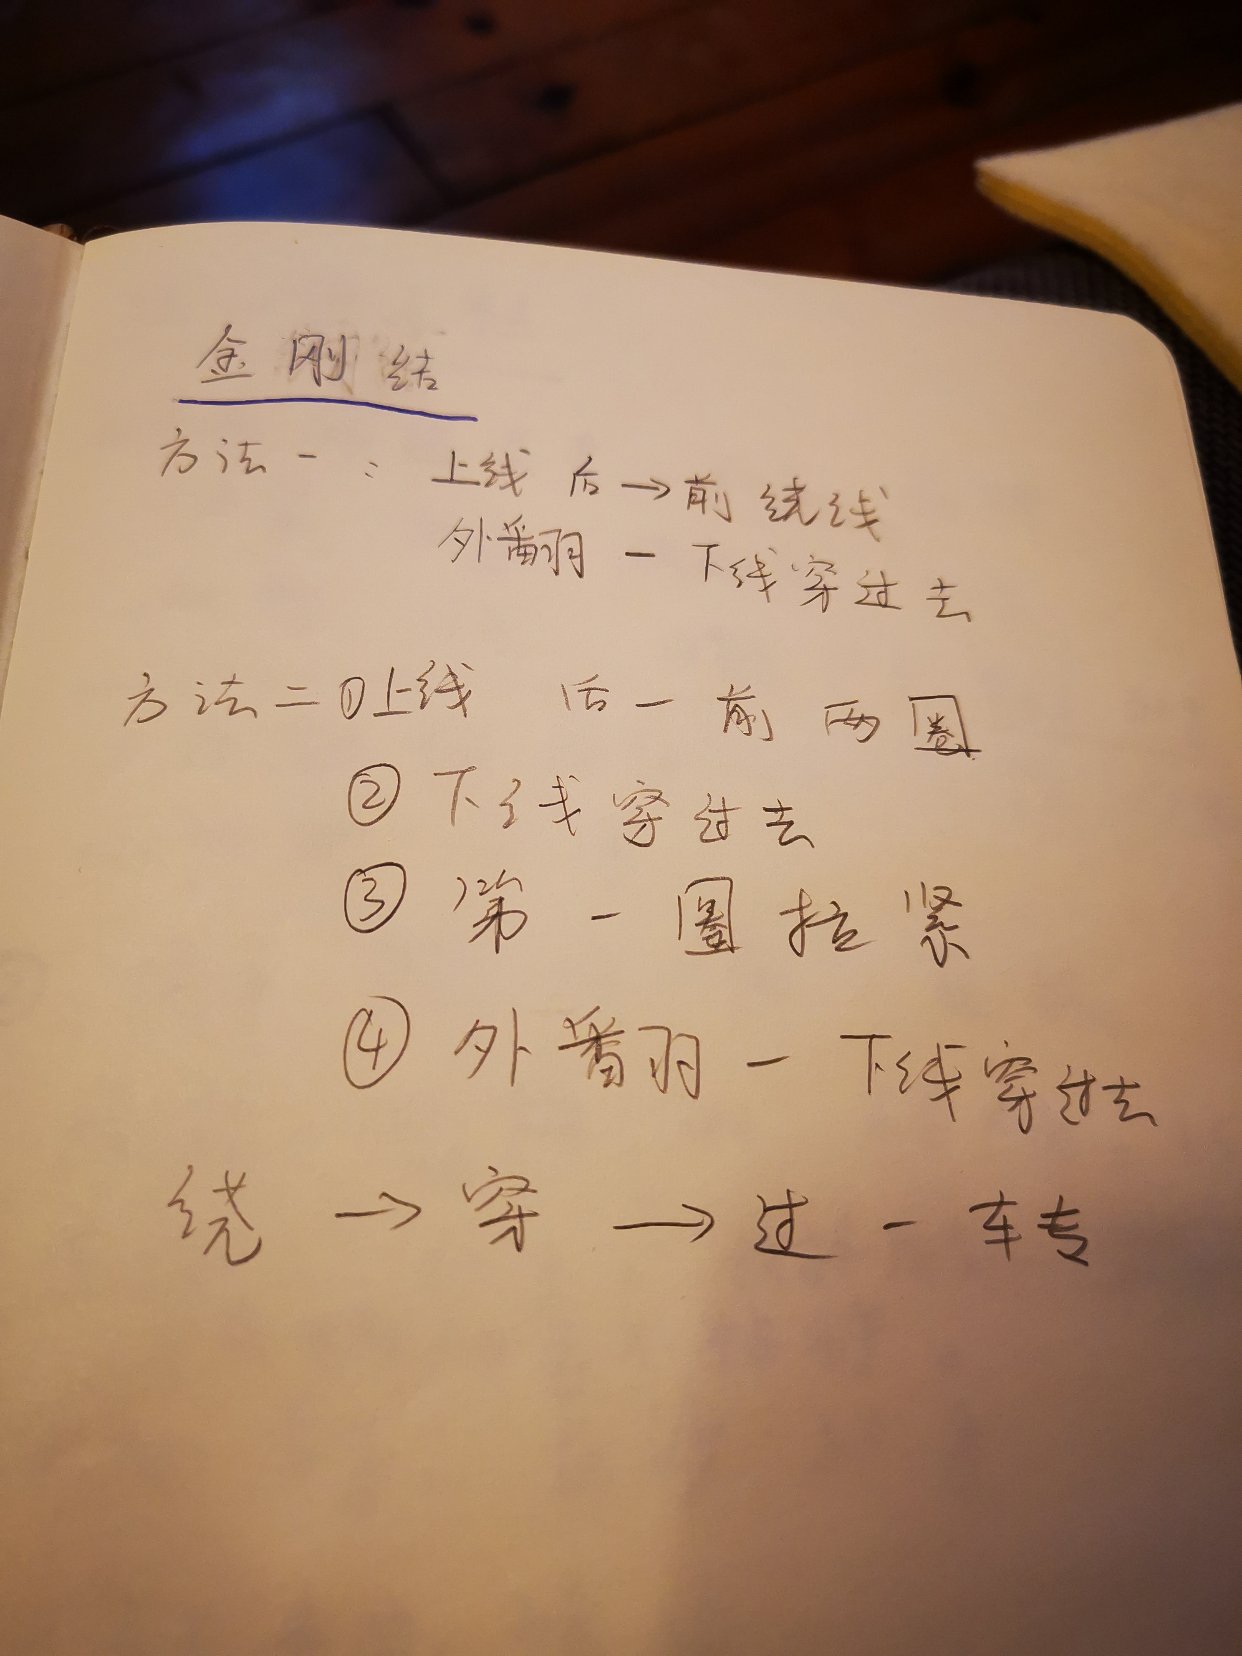 金刚结
方法一：上线 后→前 绕线
外翻 一 下线穿过去
方法二 ①上线 后一前 两圈
② 下线穿过去
③ 第一圈拉紧
④ 外翻 一 下线穿过去
绕 → 穿 → 过 一 转